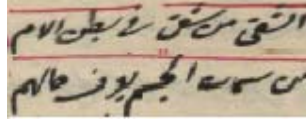 الشقى من شقى فى بطن الام
من سمات الجسم يعرف حالهم